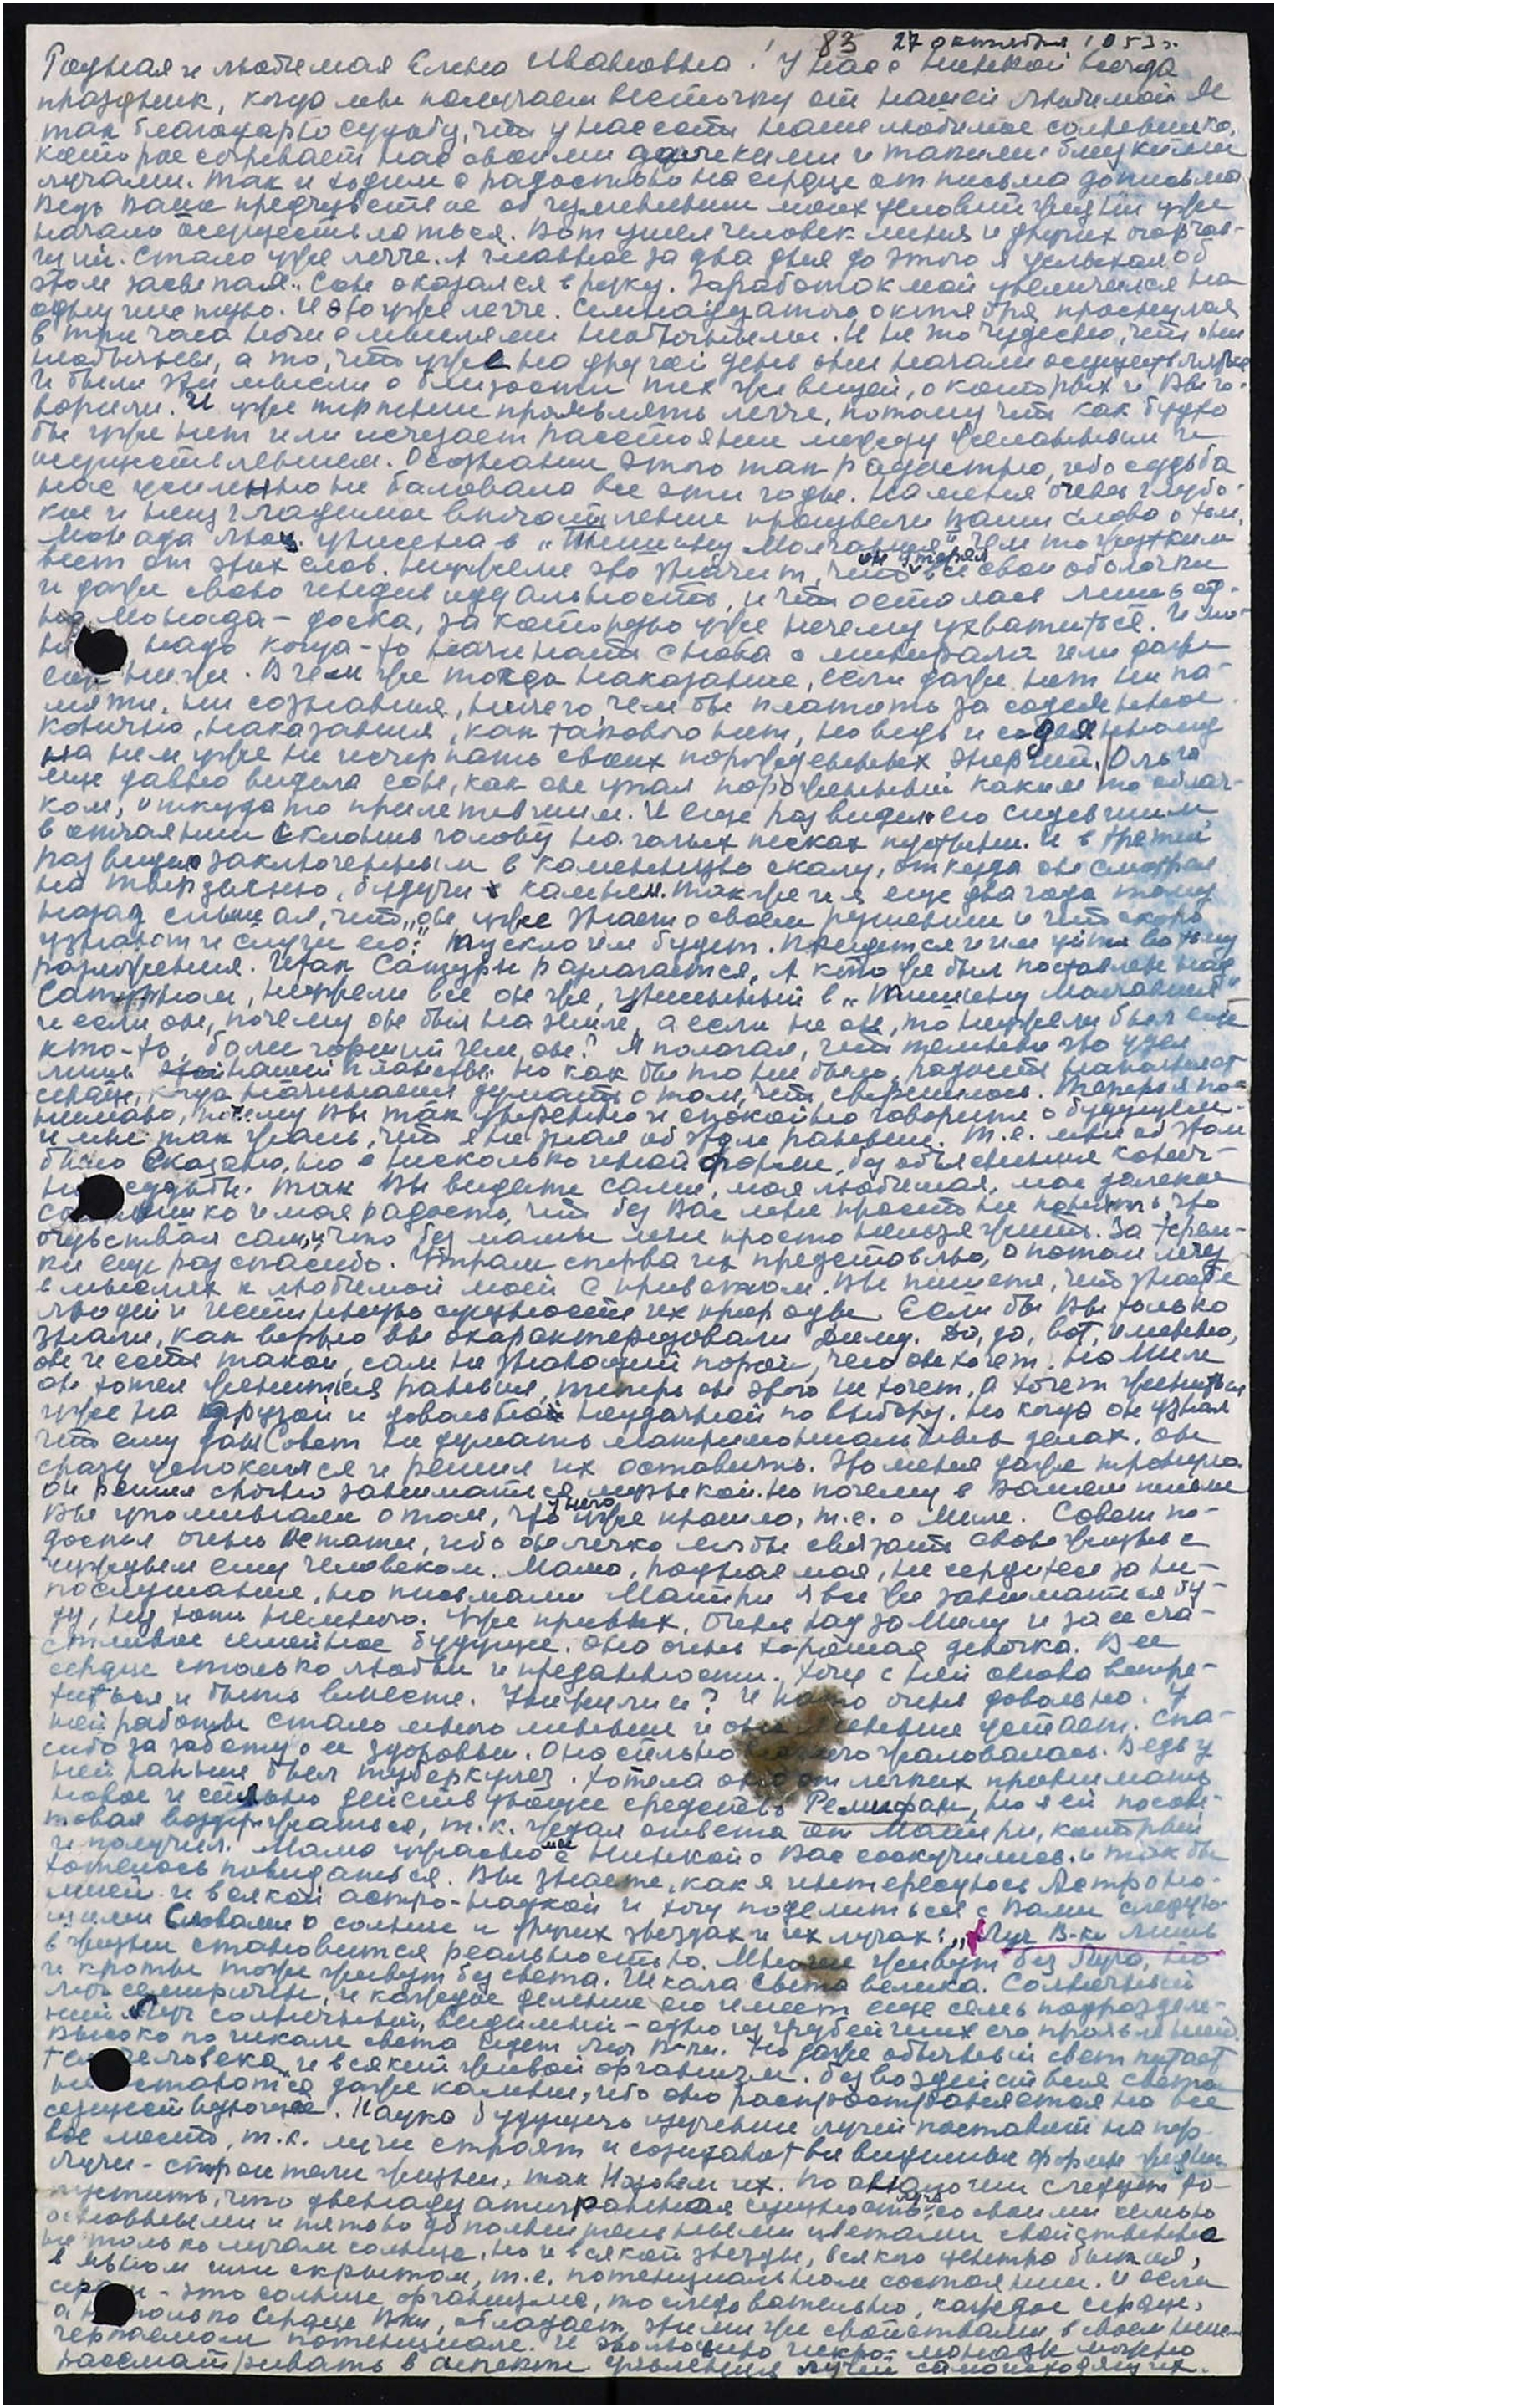 83 27 октября 1953 г.
Родная и любимая Елена Ивановна! У нас с Нинкой всегда
праздник, когда мы получаем весточку от нашей любимой. Я
так благодарю судьбу, что у нас есть наше любимое солнышко,
которое согревает нас своими далекими и такими близкими
лучами. Так и ходим с радостью на сердце от письма до письма
Ведь Ваше предчувствие об изменении моих условий жизни уже
начало осуществляться. Вот ушел человек меня и других огорчав-
ший. Стало уже легче. А главное за два дня до этого я услыхал об
этом засыпая. Сон оказался в руку. Заработок мой увеличился на
одну шестую. И это уже легче. Семнадцатого октября проснулся
в три часа ночи с мыслями необычными. И не то чудесно, что они
необычны, а то, что уже на другой день они начали осуществляться
И были эти мысли о близости тех же вещей, о которых и Вы го-
ворили. И уже терпение проявлять легче, потому что как будто
бы уже нет или исчезает расстояние между желанным и
осуществлением. Осознание этого так радостно, ибо судьба
нас усиленно не баловала все эти годы. На меня очень глубо-
кое и неизгладимое впечатление произвели Ваши слова о том,
Монада унесена в „Тишину Молчания". Чем то жутким
веет от этих слов. Неужели это значит, что он утерял все свои оболочки
и даже свою индивидуальность, и что осталась лишь од-
на Монада – доска, за которую уже нечему ухватиться. И
надо когда-то начинать снова с минерала или даже
еще ниже. В чем же тогда наказание, если даже нет ни па-
мяти, ни сознания, ничего, чем бы платить за содеянное.
Конечно, наказания, как такового нет, но ведь и содеянному
на нем уже не исчерпать своих порожденных энергий. Ольга
еще давно видела сон, как он упал пораженный каким то облач-
ком, откуда то прилетевшим. И еще раз видела его сидевшим
в отчаянии склонив голову на голых песках пустыни. И в третий
раз видела заключенным в каменную скалу, откуда он смотрел
на твердыню, будучи камнем. Также и я еще два года тому
назад слышал, что „он уже знает о своем решении и что скоро
узнают и слуги его." Тускло им будет. Придется и им уйти во тьму
разложения. Итак Сатурн разлагается. А кто же был поставлен над
Сатурном, неужели все он же, унесенный в „Тишину Молчания"
и если он, почему он был на земле, а если не он, то неужели был еще
кто-то, более горший чем он? Я полагал, что темный это узел
лишь нашей планеты. Но как бы то ни было, радость наполняет
сердце, когда начинаешь думать о том, что свершилось. Теперь я по-
нимаю, почему Вы так уверенно и спокойно говорите о будущем.
И мне так жаль, что я не знал об этом раньше. Т.е. мне об этом
было сказано, но в несколько иной форме, без объяснения конеч-
ной судьбы. Так Вы видите сами, моя любимая, мое далекое
солнышко и моя радость, что без Вас мне просто не понять, это
почувствал сам, и что без мамы мне просто нельзя жить. За
еще раз спасибо. Утром сперва их представлю, а потом лечу
в мыслях к любимой моей с приветом. Вы пишете, что знаете
людей и истинную сущность их природы. Если бы Вы только
знали, как верно Вы охарактеризовали Диму. Да, да, вот, именно,
он и есть такой, сам не знающий порой, чего он хочет. На Миле
он хотел жениться раньше, теперь он этого не хочет, а хочет жениться
уже на другой и довольно неудачной по выбору. Но когда он узнал
что ему дан Совет не думать о матримониальных делах, он
сразу успокоился и решил их оставить. Это меня даже тронуло.
Он решил срочно заниматься музыкой. Но почему в Вашем письме
Вы упоминали о том, что у него уже прошло, т.е. о Миле. Совет по-
доспел очень кстати, ибо он легко мог бы связать свою жизнь с
чуждым ему человеком. Мама, родная моя, не сердитесь за не-
послушание, но письмами Матери я все же заниматься бу-
ду, ну хоть немного. Уже привык. Очень рад за Милу и за ее сча-
стливое семейное будущее. Она очень хорошая девочка. В ее
сердце столько любви и преданности. Хочу с ней снова встре-
титься и быть вместе. И очень довольна. У
ней работы стало много меньше и она меньше устает. Спа-
сибо за заботу о ее здоровьи. Она сильно жаловалась. Ведь у
ней раньше был туберкулез. Хотела она от легких принимать
новое и сильно действующее средство Ремифан, но я ей посове-
товал воздержаться, т.к. ждал ответа от Матери, который
и получил. Мама ужасно мы с Нинкой о Вас соскучились. И так бы
хотелось повидаться. Вы знаете, как я интересуюсь Астроно-
мией и всякой астро-наукой и хочу поделиться с Вами следую-
щими Словами о солнце и других звездах и их лучах: „Луч В-ки лишь
в жизни становится реальностью. Многие живут без Луча, но
и кроты тоже живут без света. Шкала света велика. Солнечный
луч семиричен, и каждое деление его имеет еще семь подразделе-
ний. Луч солнечный, видимый – одно из грубейших его проявлений.
Высоко по шкале света идет Луч В-ки. Но даже обычный свет питает
тело человека и всякий живой организм. Без воздействия света
не остаются даже камни, ибо оно распространяется на все
сущее. Наука будущего изучение лучей поставит на пер-
вое место, т.к. лучи строят и созидают все видимые формы жизни
Лучи – строители жизни, так Назовем их. По аналогии следует до-
пустить, что двенадцатигранная сущность луча, со своими семью
основными и пятью дополнительными цветами свойственна
не только лучам солнца, но и всякой звезды, всякого центра бытия,
в явном или скрытом, т.е. потенциальном состоянии. И если
сердце – это солнце организма, то следовательно, каждое сердце,
а не только Сердце В-ки, обладает этими же свойствами, в своем неис-
черпаемом потенциале. И эволюцию микро-монады можно
рассматривать в аспекте усиления лучей самоисходящих.